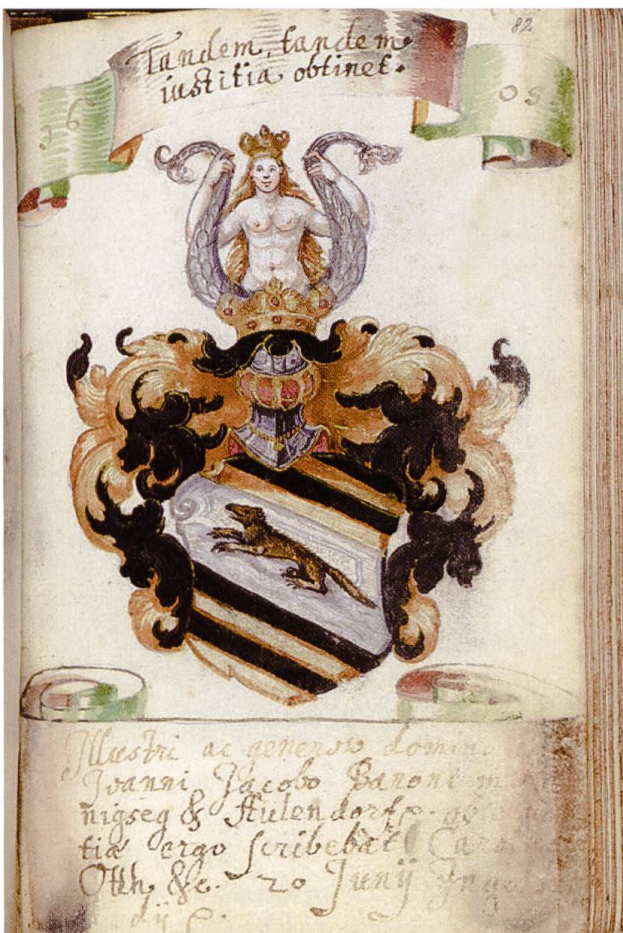 82
Tandem, tandem
iustitia obtinet.
16 05
Illustri ac generoso domino
Joanni Jacobo Baroni in
nigseg & Aulendorf
tia ergo scribebat
Otth &c. 20 Junij